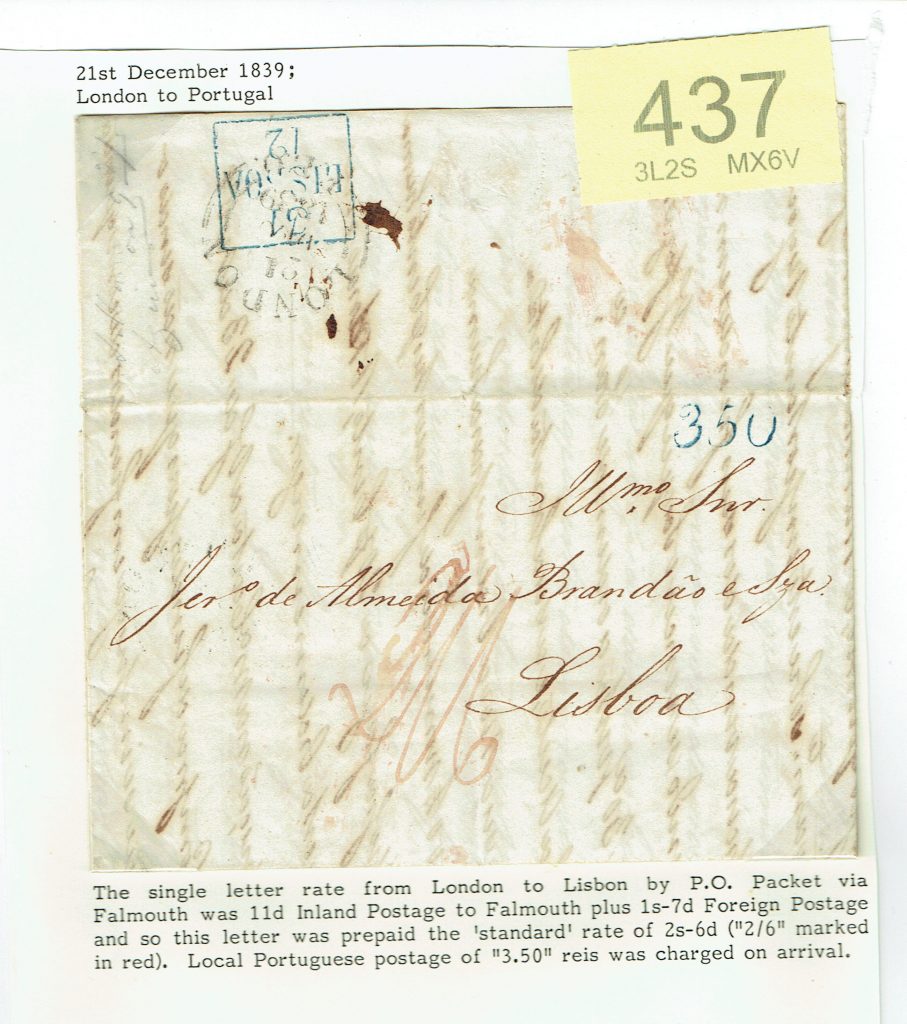 21st December 1839;
London to Portugal
437
3L2S MX6V
12
LISBOA
31
LONDON
21
1839
350
Illmo. Snr.
Jero. de Almeida Brandão e Sza.
Lisboa
The single letter rate from London to Lisbon by P.O. Packet via
Falmouth was 11d Inland Postage to Falmouth plus 1s-7d Foreign Postage
and so this letter was prepaid the 'standard' rate of 2s-6d ("2/6" marked
in red). Local Portuguese postage of "3.50" reis was charged on arrival.